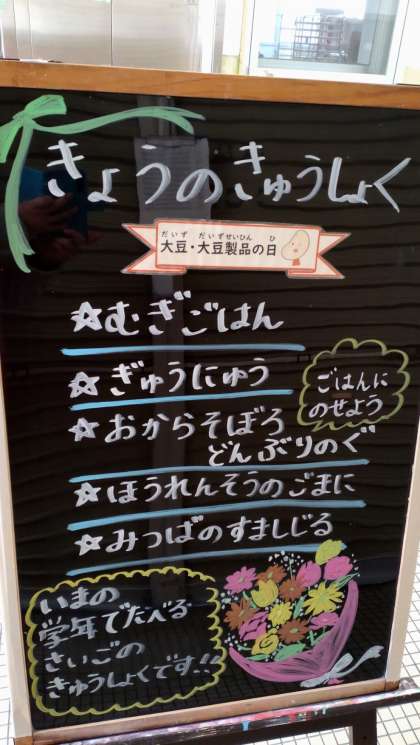 きょうのきゅうしょく
だいず だいずせいひん ひ
大豆・大豆製品の日
☆むぎごはん
☆ぎゅうにゅう
ごはんに
のせよう
☆おからそぼろ
どんぶりのぐ
☆ほうれんそうのごまに
☆みつばのすましじる
いまの
学年でたべる
さいごの
きゅうしょくです!!